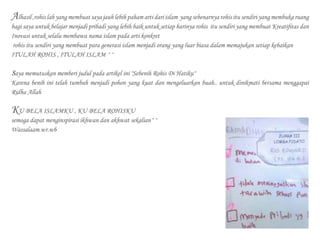 Alhasil, rohis lah yang membuat saya jauh lebih paham arti dari islam yang sebenarnya rohis itu sendiri yang membuka ruang
bagi saya untuk belajar menjadi pribadi yang lebih baik untuk setiap harinya rohis itu sendiri yang membuat Kreatifitas dan
Inovasi untuk selalu membawa nama islam pada arti konkret
rohis itu sendiri yang membuat para generasi islam menjadi orang yang luar biasa dalem memajukan setiap kebaikan
ITULAH ROHIS , ITULAH ISLAM ^^
Saya memutuskan memberi judul pada artikel ini "Sebenih Rohis Di Hatiku"
Karena benih ini telah tumbuh menjadi pohon yang kuat dan mengeluarkan buah.. untuk dinikmati bersama menggapai
Ridha Allah
KU BELA ISLAMKU , KU BELA ROHISKU
semoga dapat menginspirasi ikhwan dan akhwat sekalian^^
Wassalaam wr.wb
JUARA III
LOMBA PIDATO
di bulan
tidak meninggalkan
Menjadi Pribadi yg